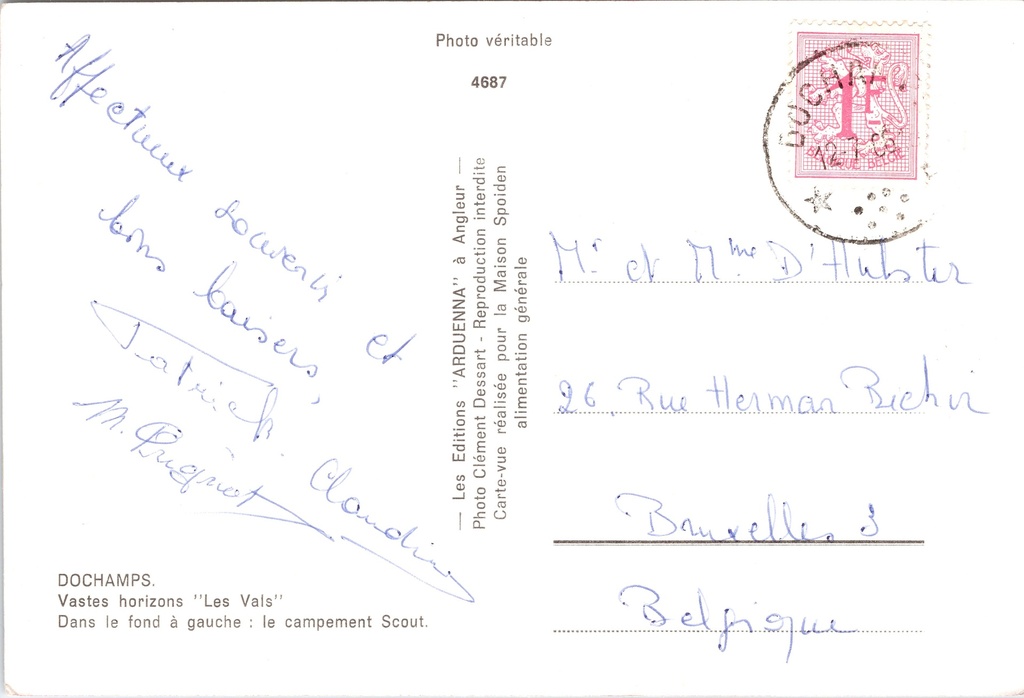 Photo véritable
4687
Affectueux souvenir et
bons baisers,
Patrick. Claudine
M.
— Les Editions "ARDUENNA" à Angleur —
Photo Clément Dessart - Reproduction interdite
Carte-vue réalisée pour la Maison Spoiden
alimentation générale
DOCHAMPS.
Vastes horizons "Les Vals"
Dans le fond à gauche : le campement Scout.
1F
BELGIQUE BELGIE
DOCHAMPS
Mr et Mme D'Hulster
26, Rue Herman Richir
Bruxelles 3
Belgique